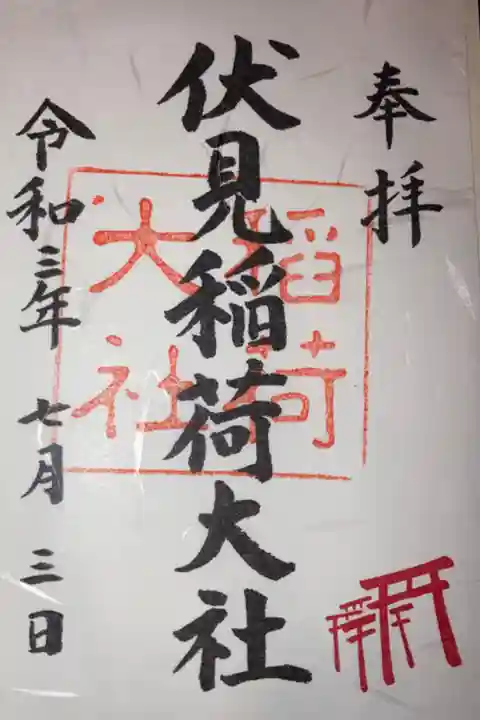 奉拝
伏見稲荷大社
稲荷
大社
令和三年 七月 三日